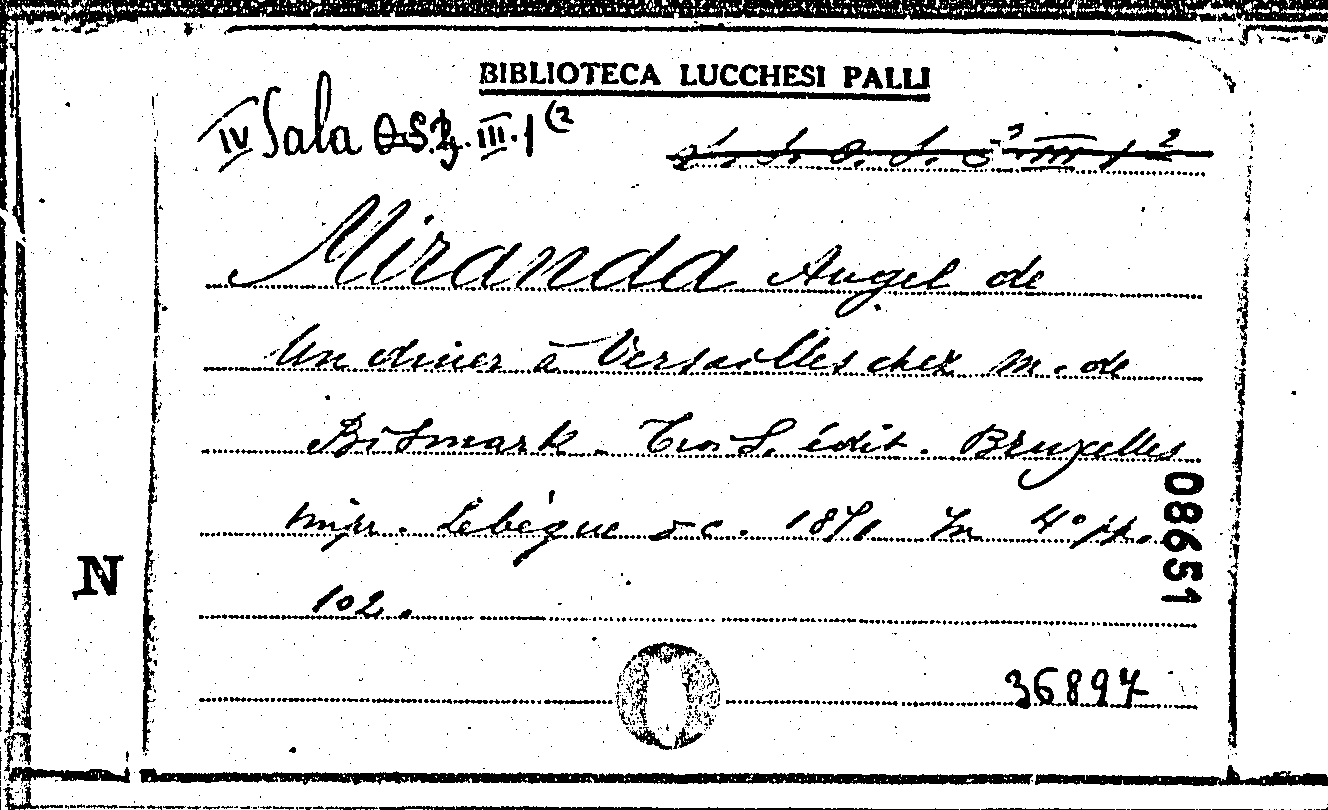 BIBLIOTECA LUCCHESI PALLI
IV Sala III.1(2
Miranda Angel de
Un diner à Versailles chez m. de
Bismark. édit. Bruxelles
impr. Lebègue & c. 1871 In 4° pp.
102.
08651
N
36897